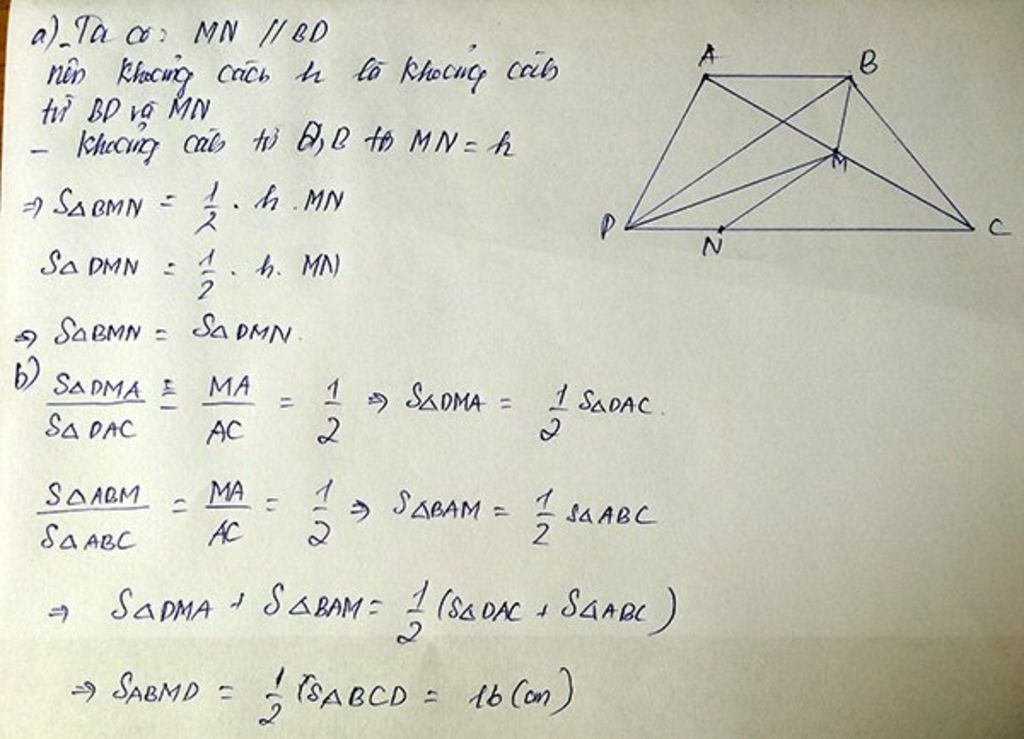 a) - Ta có: MN // BD
nên khoảng cách h là khoảng cách
từ BD và MN
- khoảng cách từ D, B tới MN = h
⇒ SΔBMN = 1/2 . h . MN
SΔDMN = 1/2 . h . MN
⇒ SΔBMN = SΔDMN.
b) SΔDMA / SΔDAC = MA / AC = 1/2 ⇒ SΔDMA = 1/2 SΔDAC.
SΔABM / SΔABC = MA / AC = 1/2 ⇒ SΔBAM = 1/2 SΔABC
⇒ SΔDMA + SΔBAM = 1/2 (SΔDAC + SΔABC)
⇒ SABMD = 1/2 SABCD = 16 (cm)
A B
M
D N C